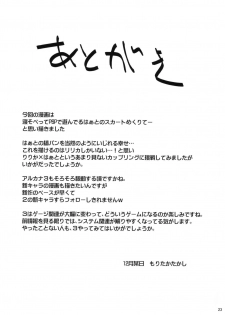 あとがき
今回の漫画は
寝そべってPSPで遊んでるはぁとのスカートめくりてー
と思い描きました
はぁとの縞パンを当然のようにいじれる幸せ…
これを描けるのはリリカしかいない…!と思い
リリカ×はぁとというあまり見ないカップリングに挑戦してみましたが
いかがだったでしょうか。
アルカナ3もそろそろ稼動する頃ですかね。
新キャラの漫画も描きたいんですが
難性のペースが早くて
2の新キャラすらフォローしきれませんw
3はゲージ関連が大幅に変わって、どういうゲームになるのか楽しみですね。
前情報を見る限りでは、システム関連が解りやすくなってる気がします。
やったことない人も、3やってみてはいかがでしょうか?
12月某日 もりたかたかし
23